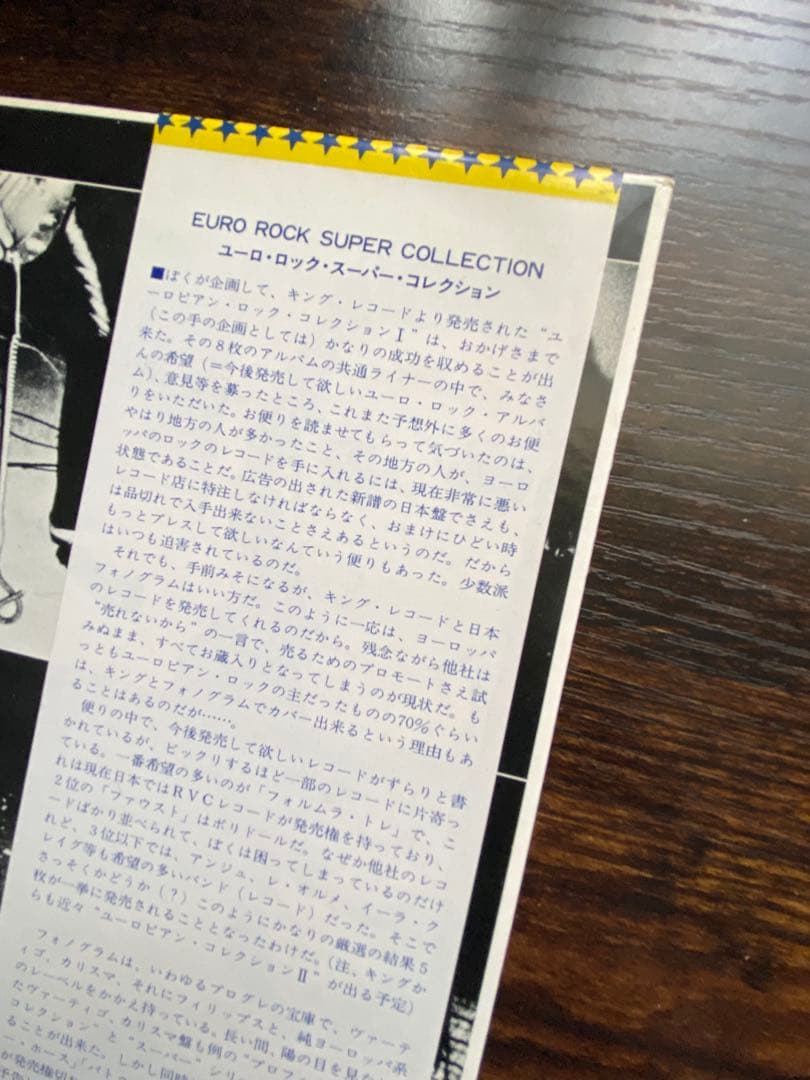 EURO ROCK SUPER COLLECTION
ユーロ・ロック・スーパー・コレクション
■ぼくが企画して、キング・レコードより発売された“ユ
ーロピアン・ロック・コレクションⅠ”は、おかげさまで
(この手の企画としては)かなりの成功を収めることが出
来た。その8枚のアルバムの共通ライナーの中で、みなさ
んの希望(=今後発売して欲しいユーロ・ロック・アルバ
ム)、意見等を募ったところ、これまた予想外に多くのお便
りをいただいた。お便りを読ませてもらって気づいたのは、
やはり地方の人が多かったこと、その地方の人が、ヨーロ
ッパのロックのレコードを手に入れるには、現在非常に悪い
状態であることだ。広告の出された新譜の日本盤でさえも、
レコード店に特注しなければならなく、おまけにひどい時
は品切れで入手出来ないことさえあるというのだ。だから
もっとプレスして欲しいなんていう便りもあった。少数派
はいつも迫害されているのだ。
それでも、手前みそになるが、キング・レコードと日本
フォノグラムはいい方だ。このように一応は、ヨーロッパ
のレコードを発売してくれるのだから。残念ながら他社は
“売れないから”の一言で、売るためのプロモートさえ試
みぬまま、すべてお蔵入りとなってしまうのが現状だ。も
っともユーロピアン・ロックの主だったものの70%ぐらい
は、キングとフォノグラムでカバー出来るという理由もあ
ることはあるのだが……。
便りの中で、今後発売して欲しいレコードがずらりと書
かれているが、ビックリするほど一部のレコードに片寄っ
ている。一番希望の多いのが「フォルムラ・トレ」で、こ
れは現在日本ではRVCレコードが発売権を持っており、
2位の「ファウスト」はポリドールだ。なぜか他社のレコ
ードばかり並べられて、ぼくは困ってしまっているのだけ
れど、3位以下では、アンジュ、レ・オルメ、イーラ・ク
レイグ等も希望の多いバンド(レコード)だった。そこで
さっそくかどうか(?)このようにかなりの厳選の結果5
枚が一挙に発売されることとなったわけだ。(注、キングか
らも近々“ユーロピアン・コレクションⅡ”が出る予定)
フォノグラムは、いわゆるプログレの宝庫で、ヴァーテ
ィゴ、カリスマ、それにフィリップスと、純ヨーロッパ系
のレーベルをかかえ持っている。長い間、陽の目を見な
たヴァーティゴ、カリスマ盤も例の“プロフ
コレクション”と“スーパー”シリ
ることが出来た。しかし同時
ー・ホース」
が発売権切